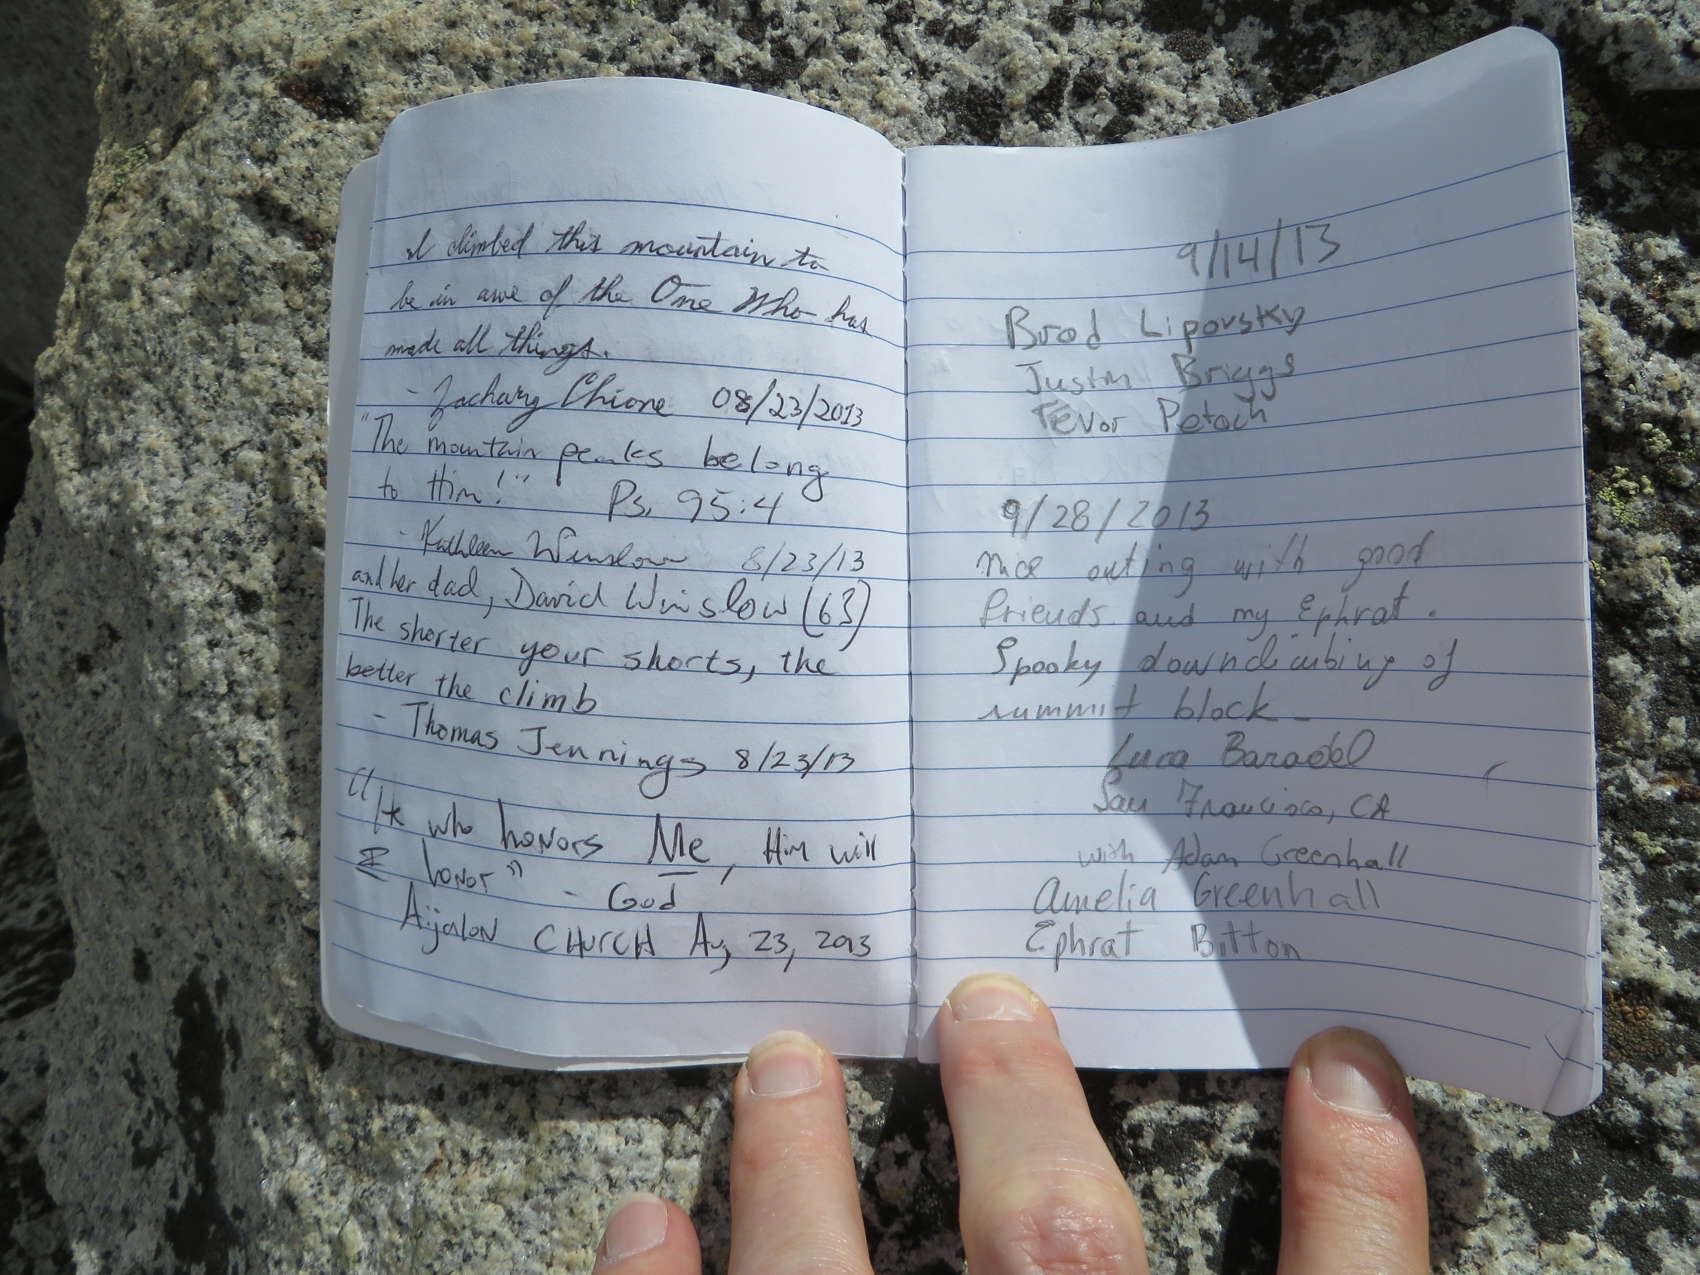 I climbed this mountain to
be in awe of the One Who has
made all things.
- Zachary Chione 08/23/2013
"The mountain peaks belong
to Him!" Ps. 95:4
- Kathleen Winslow 8/23/13
and her dad, David Winslow (63)
The shorter your shorts, the
better the climb
- Thomas Jennings 8/23/13
"He who honors Me, Him will
I honor" - God
Aijalon CHURCH Aug 23, 2013
9/14/13
Brad Lipovsky
Justin Briggs
TEvor Petach
9/28/2013
Nice outing with good
friends and my Ephrat.
Spooky downclimbing of
summit block -
Luca Baradel
San Francisco, CA
with Adam Greenhall
Amelia Greenhall
Ephrat Bitton